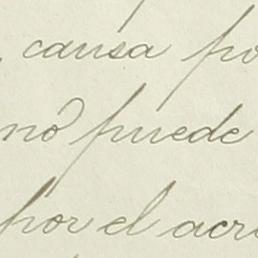 causa po
no puede
por el acre